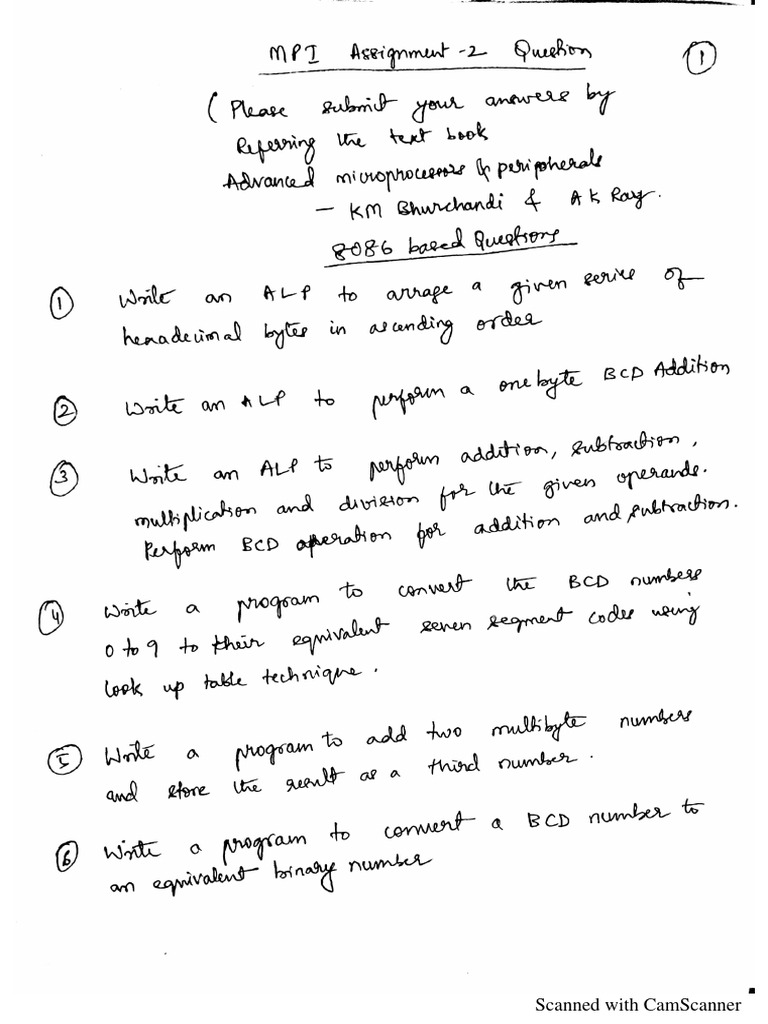 MPI Assignment -2 Question
1
( Please submit your answers by
Referring the text book
Advanced microprocessors & peripherals
- KM Bhurchandi & A K Ray.
8086 based Questions
1 Write an ALP to arrage a given series of
hexadecimal bytes in ascending order
2 Write an ALP to perform a one byte BCD Addition
3 Write an ALP to perform addition, subtraction,
multiplication and division for the given operands.
Perform BCD operation for addition and subtraction.
4 Write a program to convert the BCD numbers
0 to 9 to their equivalent seven segment codes using
look up table technique.
5 Write a program to add two multibyte numbers
and store the result as a third number.
6 Write a program to convert a BCD number to
an equivalent binary number
Scanned with CamScanner